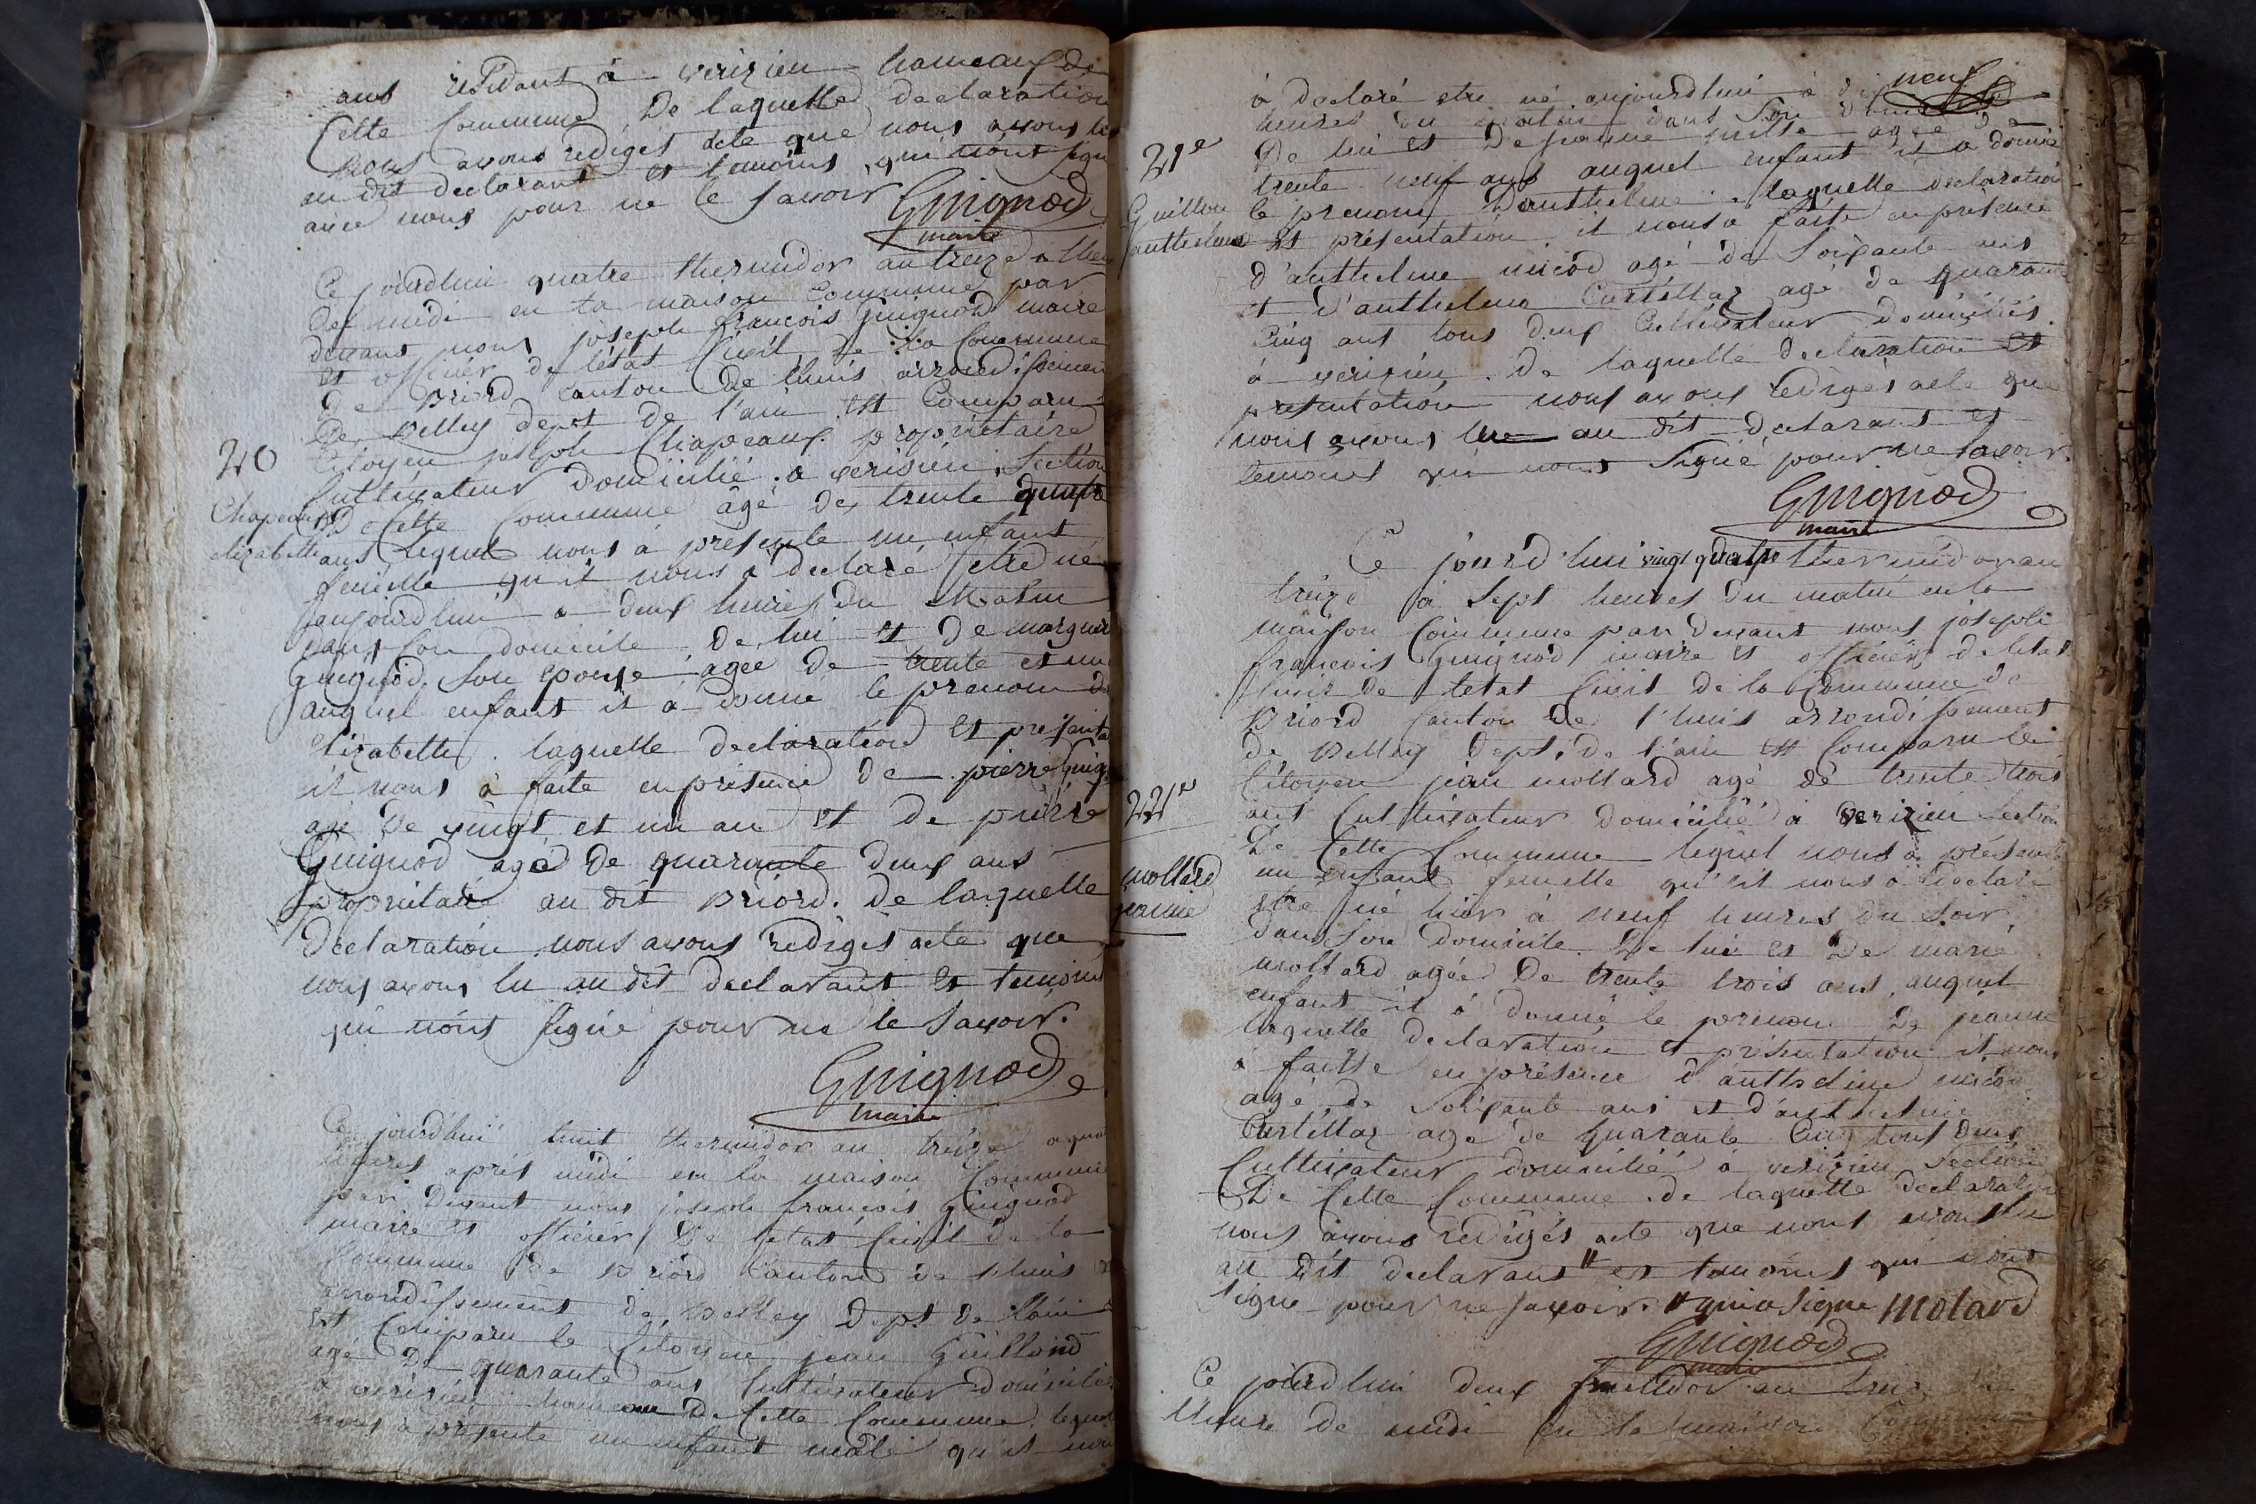 ans residant à verizieu hameaux de
Cette Commune De laquelle declaration
nous avons rediges acte que nous avons lu
au dit declarant et temoins qui nont signé
avec nous pour ne le savoir Guignod
maire
Ce jourdhui quatre thermidor an treize a lheure
de midi en la maison Commune par
devant nous joseph francois guignod maire
et officier de létat Civil de la Commune
De Briord canton de lhuis arrondissement
De Belley dept de l'ain est Comparu
40
Citoyen joseph Chapeaux proprietaire
Cultivateur domicilié a verisieu Section
Chapeaux
De Cette Commune âgé de trente quatre
elizabette
ans lequel nous à présenté un enfant
femelle qu'il nous a declaré etre né
aujourdhui a deux heures du Matin
dans son domicile de lui et de marguerite
Guignod son epouse agée de trente et un
auquel enfant il a donné le prenom de
elizabette laquelle declaration et présentation
il nous à faite en presence de pierre Guignod
agé De vingt et un an et de pierre
Guignod agé de quarante deux ans
proprietaire au dit Briord. de laquelle
declaration nous avons rediges acte que
nous avons lu au dit declarant et temoins
qui nont signé pour ne le savoir.
Guignod
maire
Ce jourdhui huit thermidor an treize a quatre
heures après midi en la maison Commune
par Devant nous joseph francois guignod
maire et officier De letat Civil de la
Commune de Briord Canton de lhuis
arrondissement de Belley Dept de l'ain
est Comparu le Citoyen jean Guillond
agé De quarante ans Cultivateur domicilié
a verisieu hameau De Cette Commune lequel
nous a présenté un enfant male qu'il nous
à declaré etre né aujourdhui à neuf
heures du matin dans son domicile
21e
De lui et De agée de
trente neuf ans auquel enfant il a donné
Guillon
le prenom Danthelme laquelle declaration
anthelme
et présentation il nous a faite en presence
d'anthelme micod agé de Soixante ans
et d'anthelme Castillaz agé De quarante
Cinq ans tous deux Cultivateur domiciliés
à verizieu. De laquelle declaration et
presentation nous avons rediges acte que
nous avons lu au dit declarant et
temoins qui nont Signé pour ne savoir.
Guignod
maire
Ce jourd'hui vingt quatre thermidor an
treize à Sept heures du matin en la
maison Commune par devant nous joseph
francois Guignod maire et officier de letat
Civil De letat Civil de la Commune de
Briord Canton de l'huis arrondissement
de Belley dept. de l'ain est Comparu le
Citoyen jean mollard agé de trente trois
22e
ans Cultivateur domicilié à verizieu Section
De Cette Commune lequel nous a présenté
mollard
un enfant femelle qu'il nous a declaré
jeanne
etre né hier à neuf heures du Soir
dans son domicile De lui et De marie
mollard agée De trente trois ans, auquel
enfant il à donné le prenom De jeanne
laquelle declaration et présentation il nous
à faitte en présence d'anthelme micod
agé de Soixante ans et d'anthelme
Castillaz age de quarante Cinq tous deux
Cultivateur domicilié à verizieu Section
De Cette Commune de laquelle declaration
nous avons rédigés acte que nous avons lu
au dit declarant " et temoins qui nont
Signe pour ne savoir. " qui a signe Molard
Guignod
maire
Ce jourdhui deux fructidor an treize
lheure de midi en la maison Commune